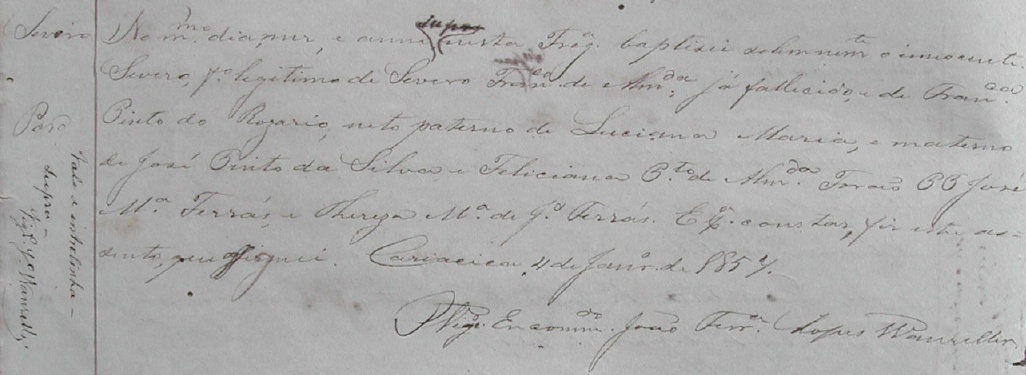 Severo
No m.mo dia, mez, e anno supra nesta Freg. baptizei solemnem.te o innocente
Severo, f.o legitimo de Severo de Alm.da já fallicido, e de Fran.ca
Pinto do Rozario, neto paterno de Luciana Maria, e materno
de José Pinto da Silva e Feliciana P.to de Alm.da Forão PP José
M.a Ferrás, e Thereza M.a de J. Ferrás. E p.a constar, fiz este as=
sento, que assignei. Cariacica, 4 de Jan.o de 1857.
O Vig.o Encomm.do João Ferr.a Lopes Wanzeller
Vale a intrelinha =
supra =
Vig.o Wanzeller